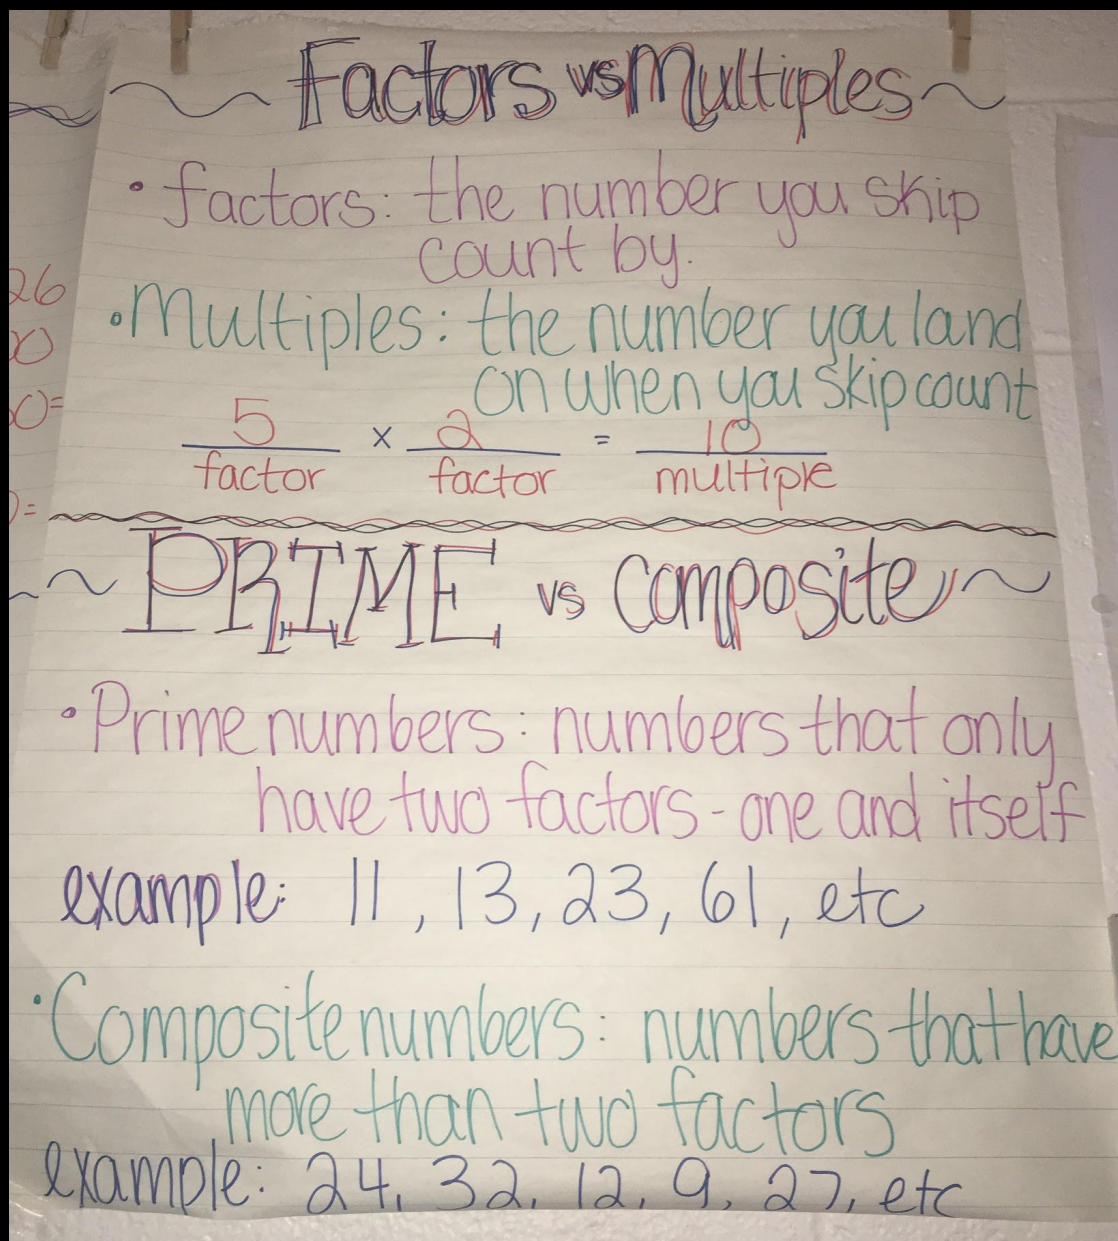 Factors vs Multiples
• factors: the number you skip
count by.
• Multiples: the number you land
on when you skip count
5 x 2 = 10
factor factor multiple
PRIME vs Composite
• Prime numbers: numbers that only
have two factors - one and itself
example: 11, 13, 23, 61, etc
• Composite numbers: numbers that have
more than two factors
example: 24, 32, 12, 9, 27, etc